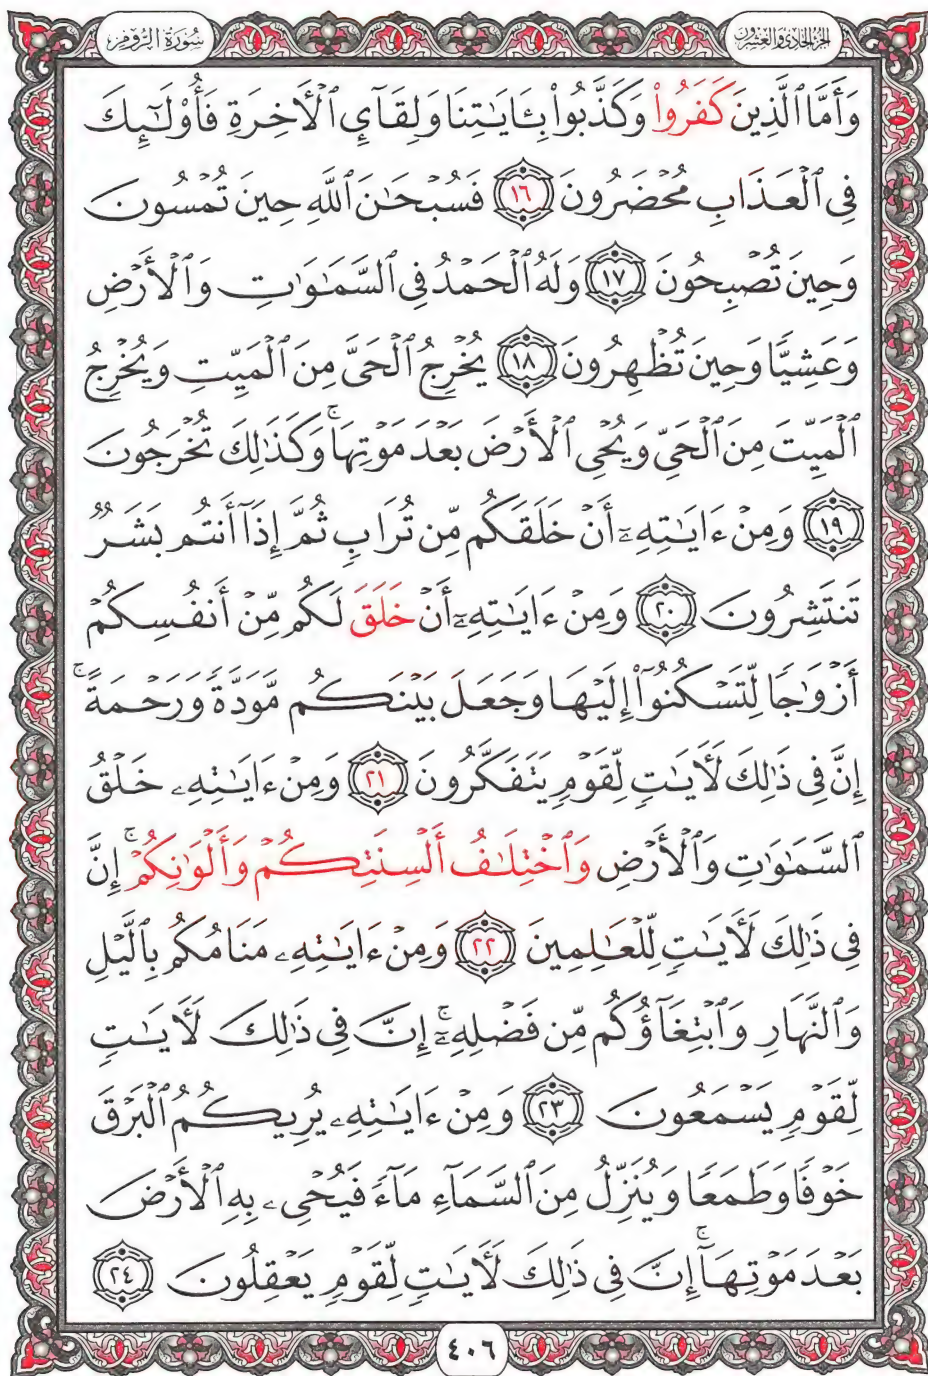 الجزء الحادي والعشرون
سُورَةُ الرُّومِ
وَأَمَّا ٱلَّذِينَ كَفَرُواْ وَكَذَّبُواْ بِـَٔايَـٰتِنَا وَلِقَآيِٕ ٱلْأَخِرَةِ فَأُوْلَـٰٓئِكَ
فِى ٱلْعَذَابِ مُحْضَرُونَ ١٦ فَسُبْحَـٰنَ ٱللَّهِ حِينَ تُمْسُونَ
وَحِينَ تُصْبِحُونَ ١٧ وَلَهُ ٱلْحَمْدُ فِى ٱلسَّمَـٰوَٰتِ وَٱلْأَرْضِ
وَعَشِيًّا وَحِينَ تُظْهِرُونَ ١٨ يُخْرِجُ ٱلْحَىَّ مِنَ ٱلْمَيِّتِ وَيُخْرِجُ
ٱلْمَيِّتَ مِنَ ٱلْحَىِّ وَيُحْىِ ٱلْأَرْضَ بَعْدَ مَوْتِهَا ۚ وَكَذَٰلِكَ تُخْرَجُونَ
١٩ وَمِنْ ءَايَـٰتِهِۦٓ أَنْ خَلَقَكُم مِّن تُرَابٍ ثُمَّ إِذَآ أَنتُم بَشَرٌ
تَنتَشِرُونَ ٢٠ وَمِنْ ءَايَـٰتِهِۦٓ أَنْ خَلَقَ لَكُم مِّنْ أَنفُسِكُمْ
أَزْوَٰجًا لِّتَسْكُنُوٓاْ إِلَيْهَا وَجَعَلَ بَيْنَكُم مَّوَدَّةً وَرَحْمَةً ۚ
إِنَّ فِى ذَٰلِكَ لَأَيَـٰتٍ لِّقَوْمٍ يَتَفَكَّرُونَ ٢١ وَمِنْ ءَايَـٰتِهِۦ خَلْقُ
ٱلسَّمَـٰوَٰتِ وَٱلْأَرْضِ وَٱخْتِلَـٰفُ أَلْسِنَتِكُمْ وَأَلْوَٰنِكُمْ ۚ إِنَّ
فِى ذَٰلِكَ لَأَيَـٰتٍ لِّلْعَـٰلِمِينَ ٢٢ وَمِنْ ءَايَـٰتِهِۦ مَنَامُكُم بِٱلَّيْلِ
وَٱلنَّهَارِ وَٱبْتِغَآؤُكُم مِّن فَضْلِهِۦٓ ۚ إِنَّ فِى ذَٰلِكَ لَأَيَـٰتٍ
لِّقَوْمٍ يَسْمَعُونَ ٢٣ وَمِنْ ءَايَـٰتِهِۦ يُرِيكُمُ ٱلْبَرْقَ
خَوْفًا وَطَمَعًا وَيُنَزِّلُ مِنَ ٱلسَّمَآءِ مَآءً فَيُحْىِۦ بِهِ ٱلْأَرْضَ
بَعْدَ مَوْتِهَآ ۚ إِنَّ فِى ذَٰلِكَ لَأَيَـٰتٍ لِّقَوْمٍ يَعْقِلُونَ ٢٤
٤٠٦